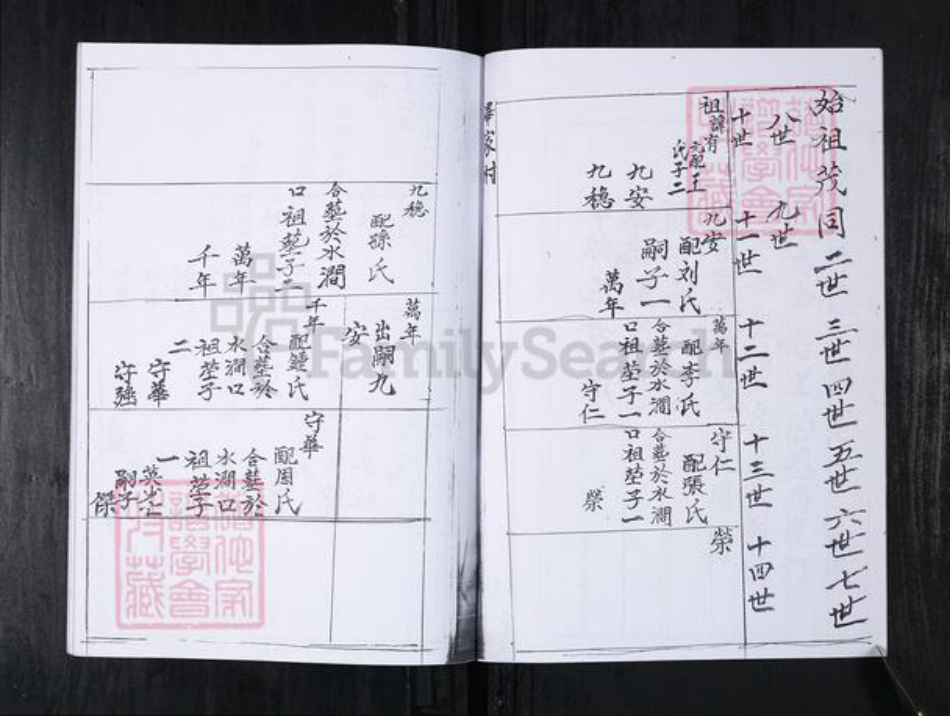 始祖茂同 二世 三世 四世 五世 六世 七世
八世 九世
十世 十一世 十二世 十三世 十四世
祖諱有
元配王
氏子二
九安
九穏
九安
配刘氏
嗣子一
萬年
萬年
配李氏
合塟於水澗
口祖塋子一
守仁
守仁
配張氏
合塟於水澗
口祖塋子一
榮
榮
家村
九穏
配孫氏
合塟於水澗
口祖塋子二
萬年
千年
萬年
出嗣九
安
千年
配鍾氏
合塟於
水澗口
祖塋子
二
守華
守強
守華
配周氏
合塟於
水澗口
祖塋子
一
嗣子
傑
FamilySearch